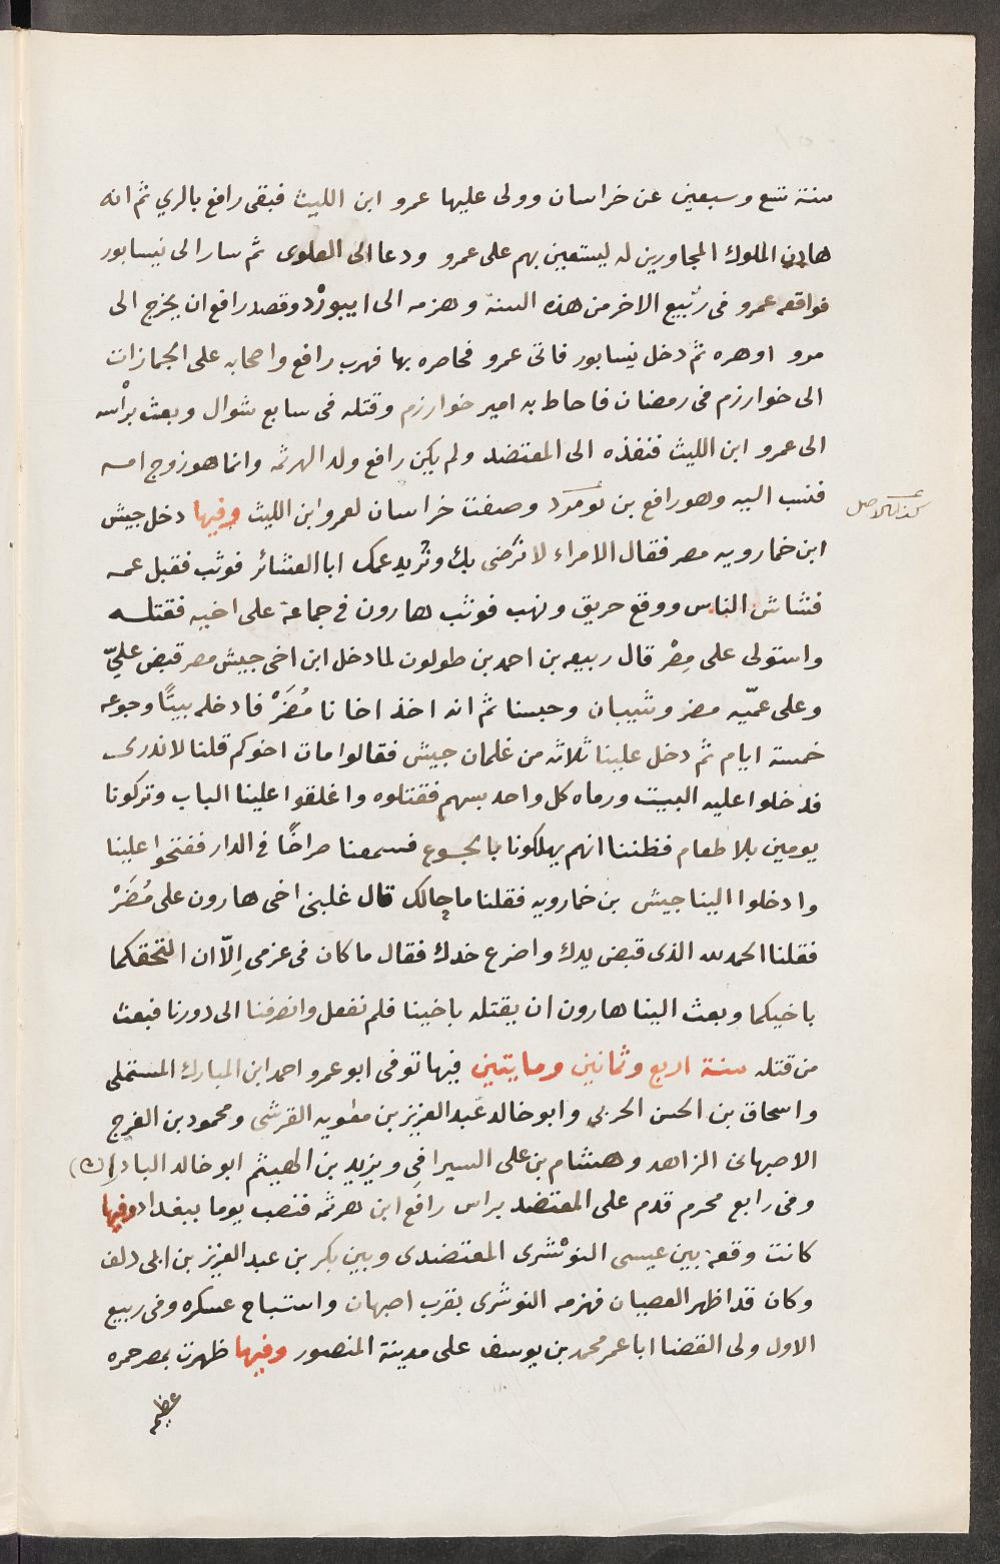 سنة تسع وسبعين عن خراسان وولى عليها عمرو ابن الليث فبقى رافع بالري ثم انه
هادن الملوك المجاورين له ليستعين بهم على عمرو ودعا الى العلوى ثم سار الى نيسابور
فواقعه عمرو فى ربيع الاخر من هذه السنة وهزمه الى ابيورْد وقصد رافع ان يخرج الى
مرو اوهره ثم دخل نيسابور فاتى عمرو فحاصره بها فهرب رافع واصحابه على الجمازات
الى خوارزم فى رمضان فاحاط به امير خوارزم وقتله فى سابع شوال وبعث براْسه
الى عمرو ابن الليث فنفذه الى المعتضد ولم يكن رافع ولد الهرثمه وانما هو زوج امه
فنسب اليه وهو رافع بن نومرد وصفت خراسان لعمرو ابن الليث وفيها دخل جيش
كذا بالاصل
ابن خمارويه مصر فقال الامراء لا نرْضى بك ونُريد عمك ابا العشائر فوثب فقبل عمه
فشاش الناس ووقع حريق ونهب فوثب هارون في جماعة على اخيه فقتله
واستولى على مِصْر قال ربيعه بن احمد بن طولون لما دخل ابن اخى جيش مصر قبض عليّ
وعلى عمّيه مضر وشيبان وحبسنا ثم انه اخذ اخانا مُضَرْ فادخله بيتًا وجوعه
خمسة ايام ثم دخل علينا ثلاثه من غلمان جيش فقالوا مات اخوكم قلنا لا ندرى
فدخلوا عليه البيت ورماه كل واحد بسهم فقتلوه واغلقوا علينا الباب وتركونا
يومين بلا طعام فظننا انهم يهلكونا بالجوع فسمعنا صراخًا في الدار ففتحوا علينا
وادخلوا الينا جيش بن خمارويه فقلنا ما حالك قال غلبنى اخى هارون على مُضَرْ
فقلنا الحمد لله الذى قبض يدك واضرع خدك فقال ما كان فى عزمى اِلّا ان التحقكما
باخيكما وبعث الينا هارون ان يقتله باخينا فلم نفعل وانصرفنا الى دورنا فبعث
من قتله سنة اربع وثمانين ومايتين فيها توفى ابو عمرو احمد ابن المبارك المستملى
واسحاق بن الحسن الحربي وابو خالد عبد العزيز بن معٰويه القرشى ومحمود بن الفرج
الاصبهانى الزاهد وهشام بن على السيرافي ويزيد بن الهيثم ابو خالد الباد (ن)
وفى رابع محرم قدم على المعتضد براس رافع ابن هرثمه فنصب يوما ببغداد وفيها
كانت وقعة بين عيسى النوْشرى المعتضدى وبين بكر بن عبد العزيز بن ابى دلف
وكان قد اظهر العصيان فهزمه النوشرى بقرب اصبهان واستباح عسكره وفى ربيع
الاول ولى القضا ابا عمر محمد بن يوسف على مدينة المنصور وفيها ظهرت بمصر حمره
عظيمه